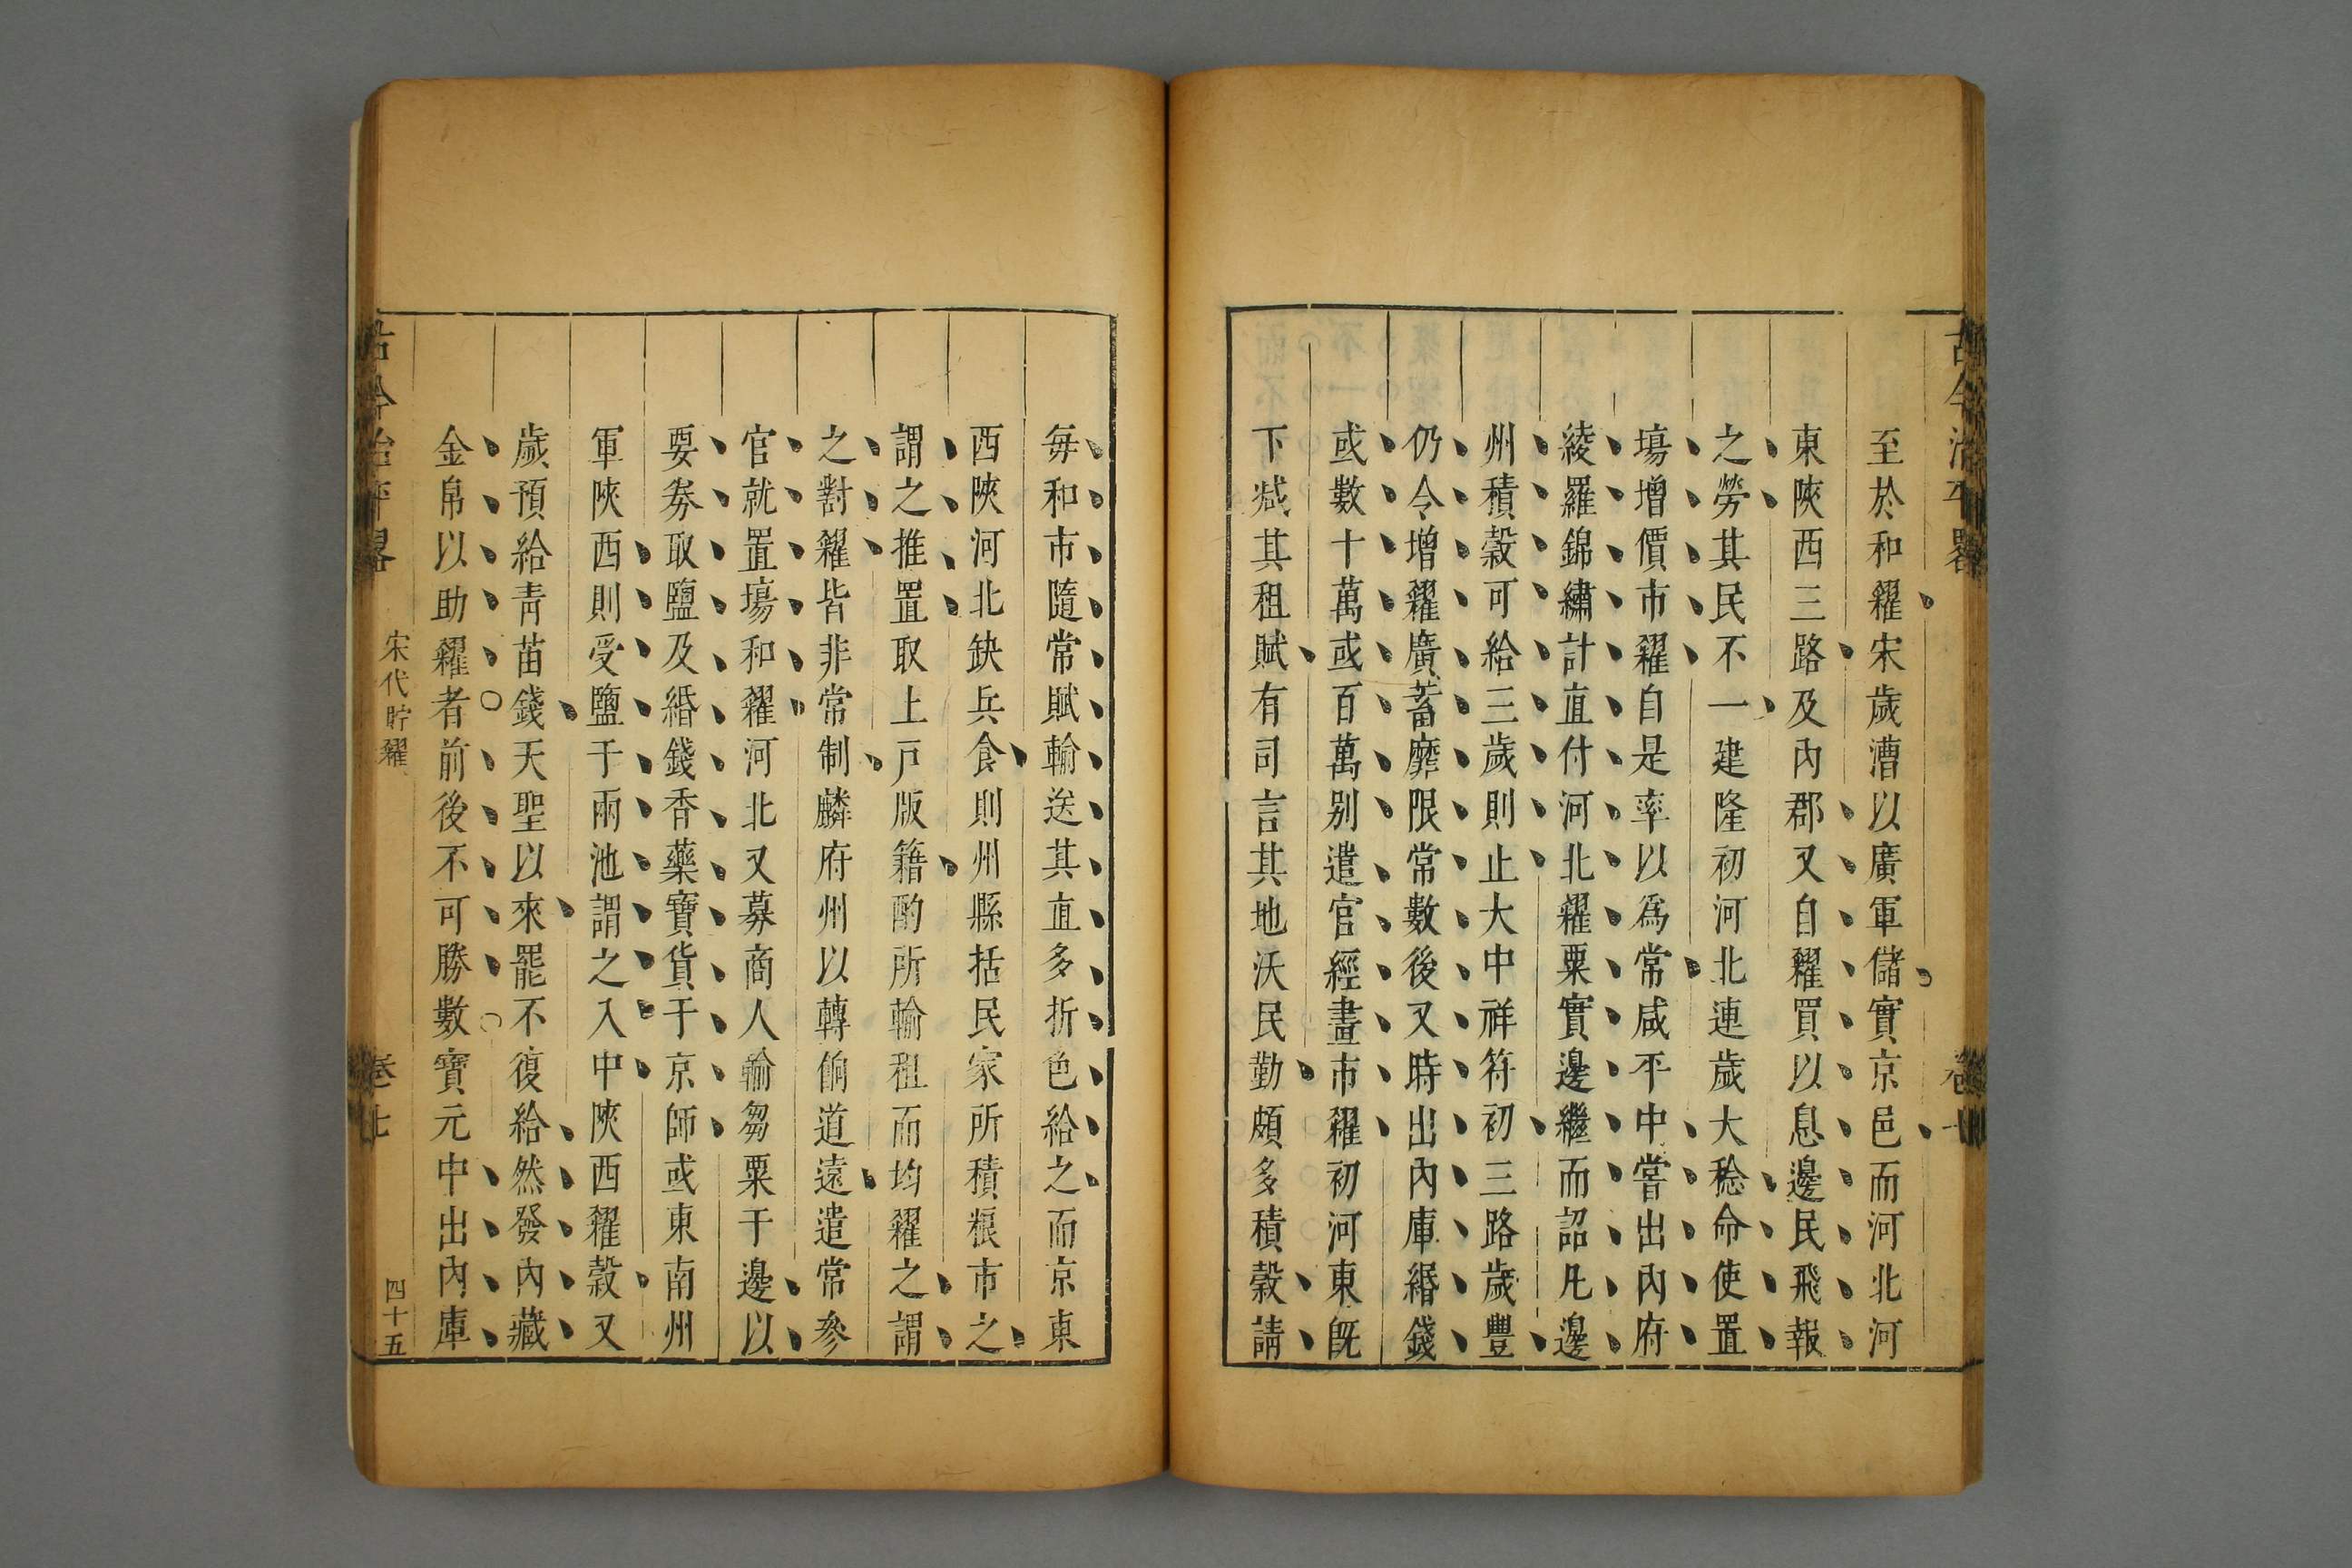 古今治平畧
至於和糴宋歲漕以廣軍儲實京邑而河北河
東陝西三路及內郡又自糴買以息邊民飛報
之勞其民不一建隆初河北連歲大稔命使置
塲增價市糴自是率以爲常咸平中嘗出內府
綾羅錦繡計直付河北糴粟實邊繼而詔凡邊
州積穀可給三歲則止大中祥符初三路歲豐
仍令增糴廣蓄靡限常數後又時出內庫緡錢
或數十萬或百萬別遣官經畫市糴初河東既
下減其租賦有司言其地沃民勤頗多積穀請
每和市隨常賦輸送其直多折色給之而京東
西陝河北缺兵食則州縣括民家所積粮市之
謂之推置取上戸版籍酌所輸租而均糴之謂
之對糴皆非常制麟府州以轉餉道遠遣常參
官就置塲和糴河北又募商人輸芻粟于邊以
要劵取鹽及緡錢香藥寶貨于京師或東南州
軍陝西則受鹽于兩池謂之入中陝西糴穀又
歲預給靑苗錢天聖以來罷不復給然發內藏
金帛以助糴者前後不可勝數寶元中出內庫
古今治平畧
宋代貯糴
卷七
四十五